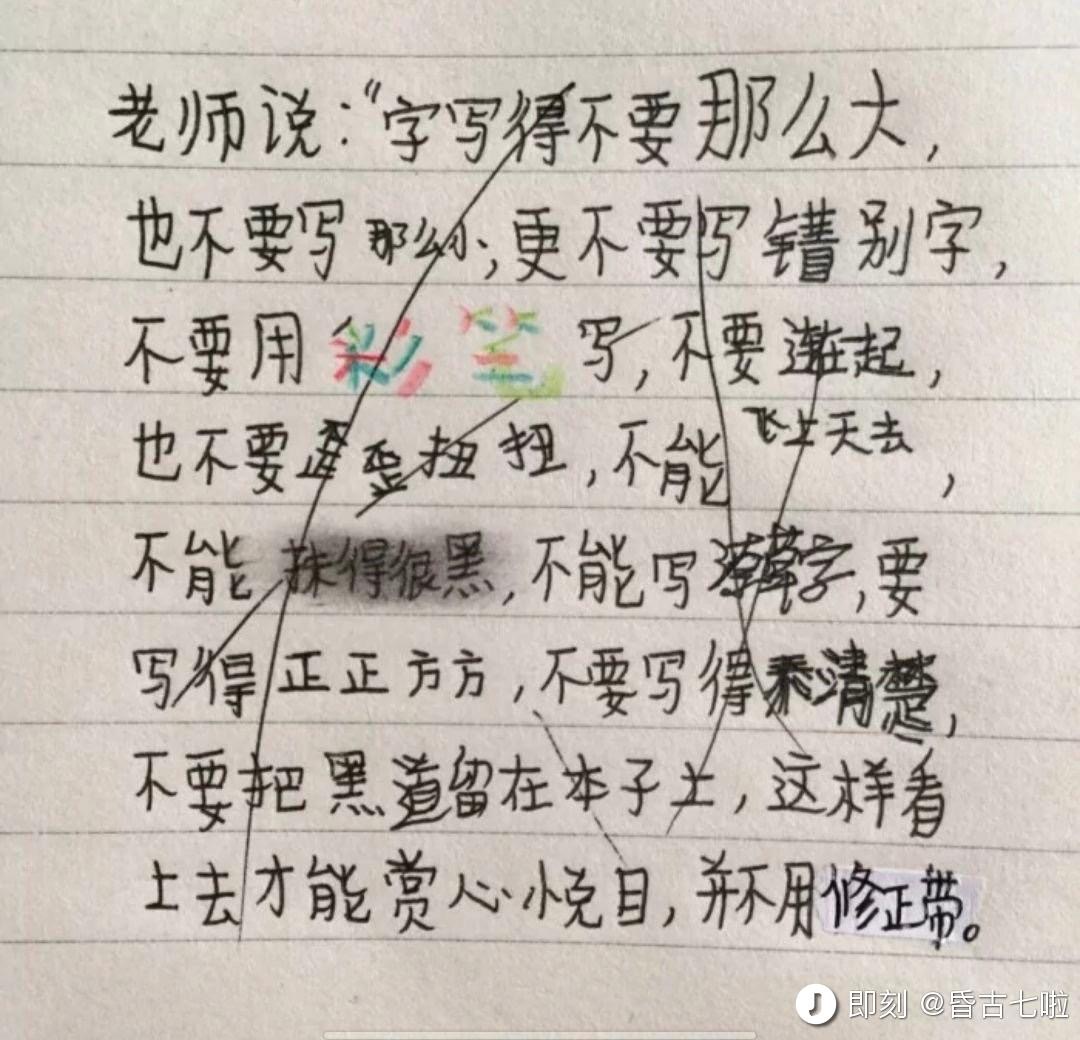 老师说：“字写得不要那么大，
也不要写那么小，更不要写错别字，
不要用彩笔写，不要连在一起，
也不要歪歪扭扭，不能飞上天去，
不能抹得很黑，不能写潦草字，要
写得正正方方，不要写得不清楚，
不要把黑道留在本子上，这样看
上去才能赏心悦目，并不用修正带。
即刻 @昏古七啦